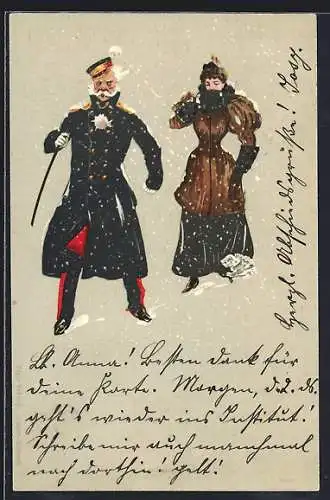 Lb. Anna! Besten Dank für
deine Karte. Morgen, d. 2. ds.
geht's wieder ins Institut!
Schreibe mir auch manchmal
nach dorthin! gelt!
Herzl. Abschiedsgrüße!